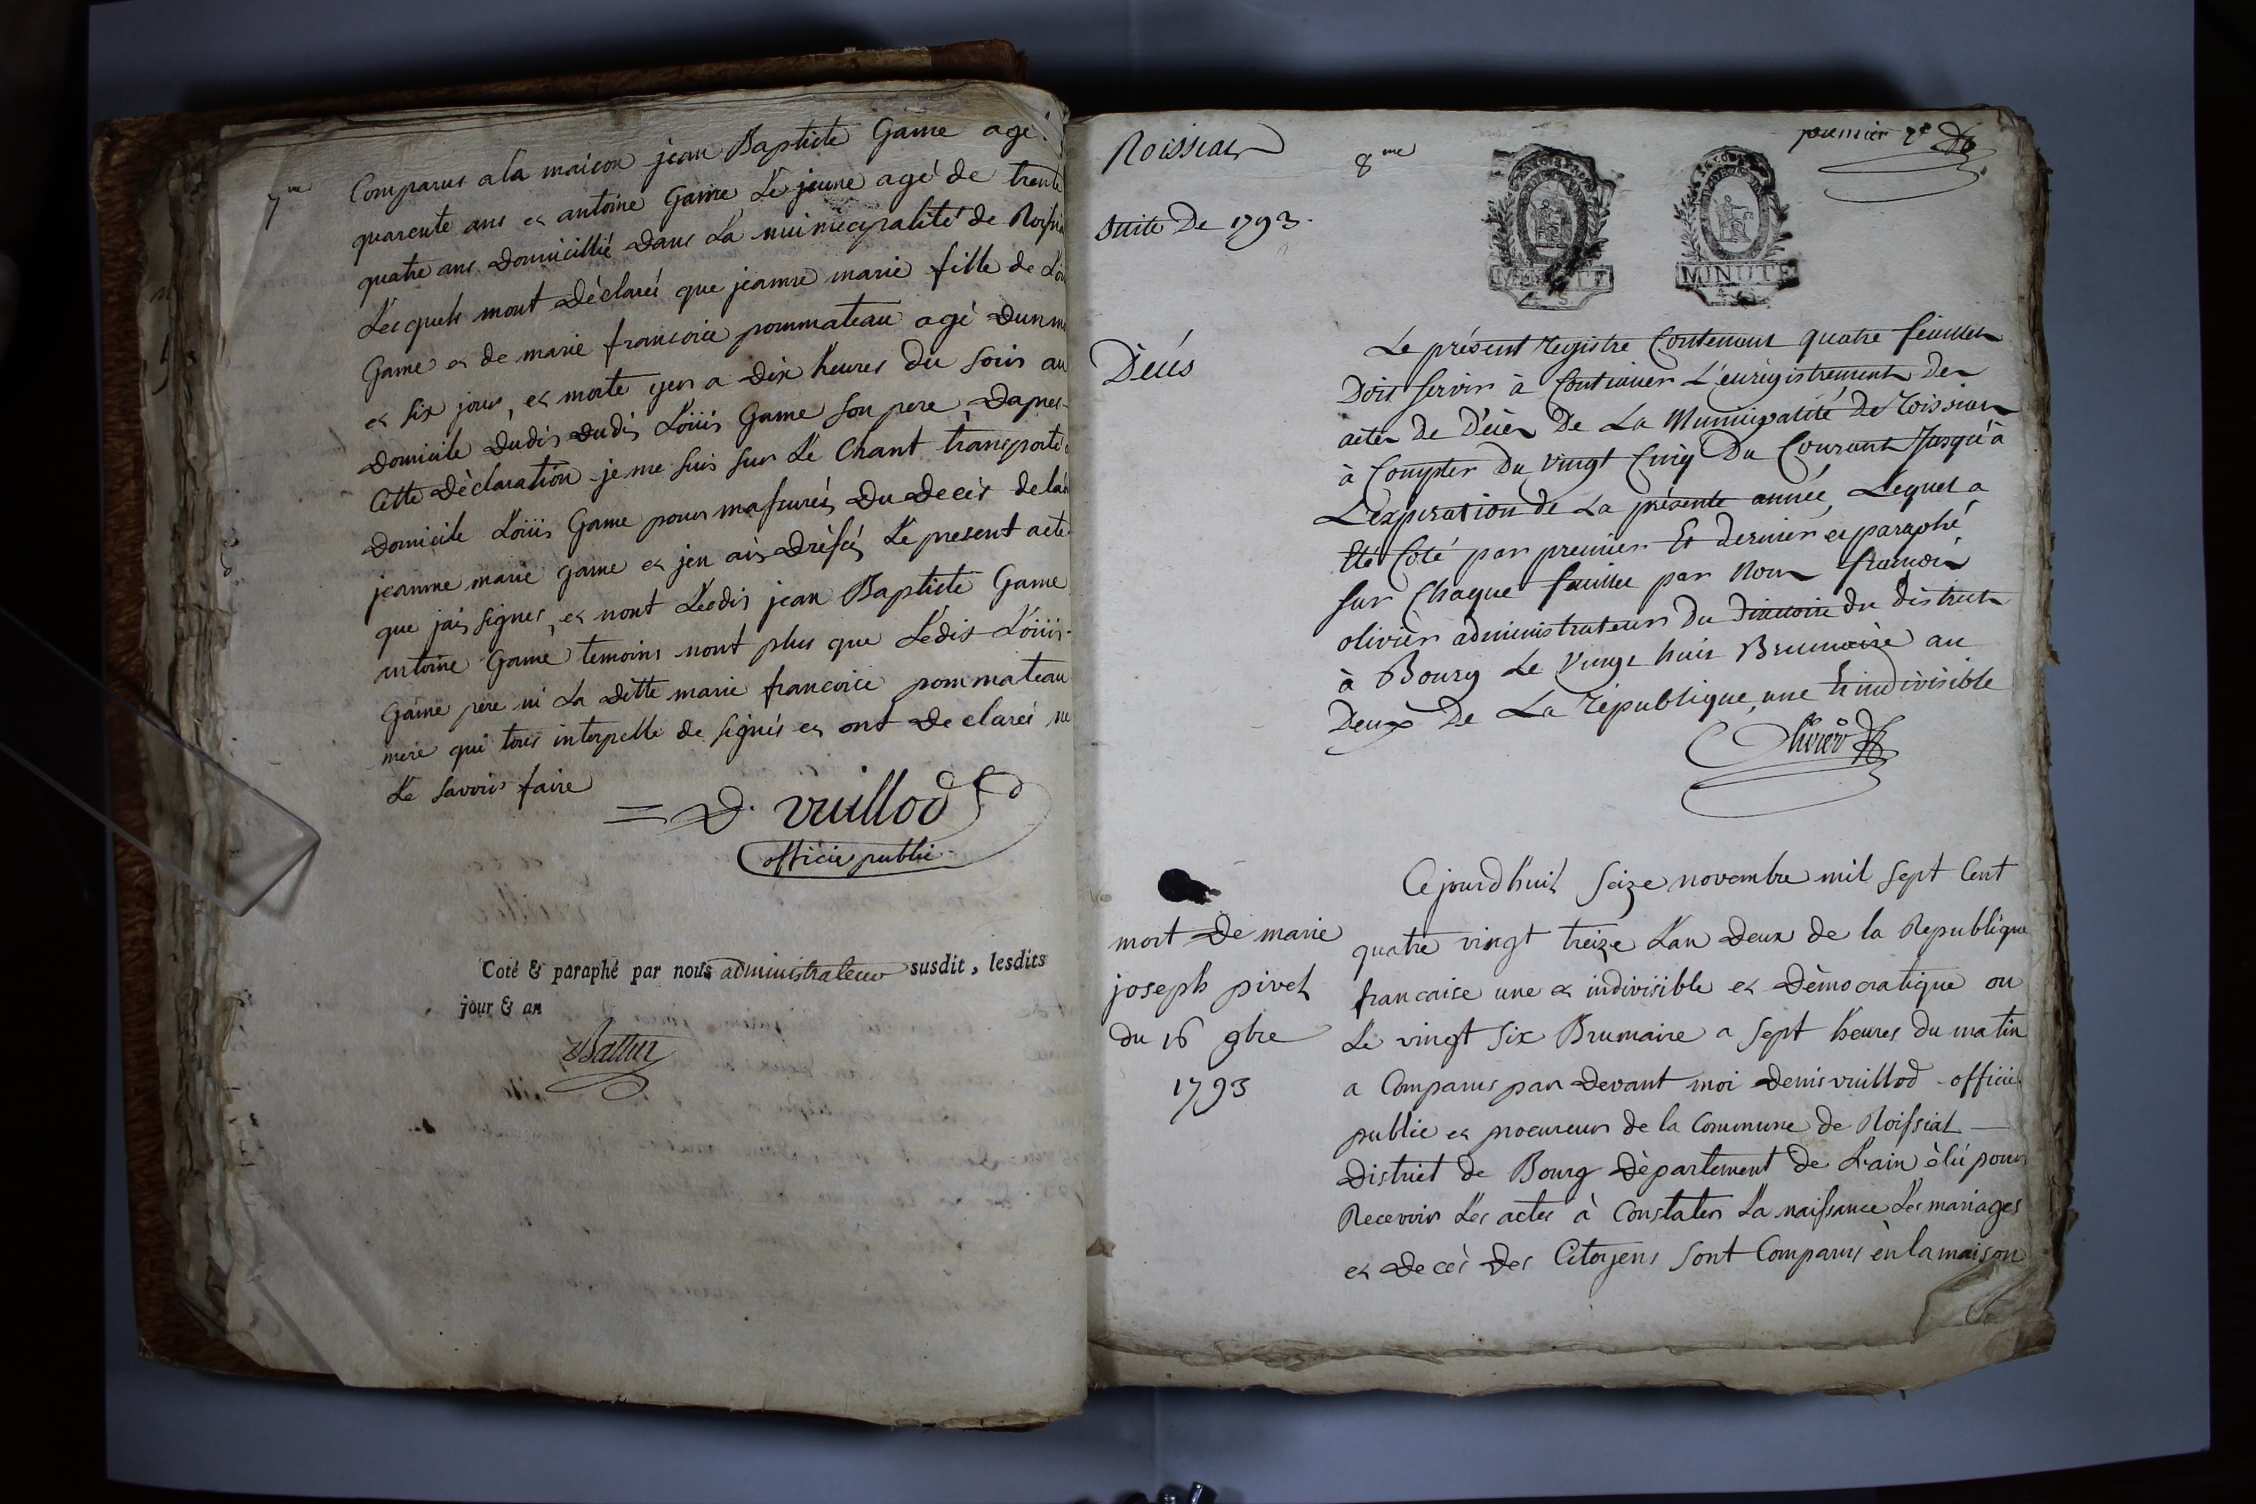 7me
Comparus a la maison jean Baptiste Game agé
quarente ans et antoine Game Le jeune agé de trente
quatre ans Domicillié Dans La municipalité de Roissia
Lesquels mont Déclarés que jeanne marie fille de Loü
Game et de marie francoice pommateau agé Dun m
et six jour, et morte yer a Dix heures Du soir au
Domicile Dudit Dudit Loüis Game son pere, Dapres
Cette Déclaration je me suis sur Le Chant transporté
Domicile Loüis Game pour massurés Du deces de la
jeanne marie game et jen ais Dréssés Le present acte
que jais signer, et nont Lesdit jean Baptiste Game
antoine Game temoins nont plus que Ledit Loüis
Game pere ni La ditte marie francoice pommateau
mere qui tous interpelle de signés et ont Declarés ne
Le savoir faire
= D. vuillod
officie public
Coté & paraphé par nous administrateur susdit, lesdits
jour & an
Roissiat
8me
premier
suite De 1793.
MINUTE
4 S
Décés
Le présent Registre Contenant quatre feuillets
Doit servir à Continuer L'enregistrement des
actes De Décès De La Municipalité De Roissiat
à Compter Du vingt Cinq Du Courant Jusqu'à
L'expiration de La présente année, Lequel a
Eté Coté par premier Et dernier et paraphé
sur Chaque feuillet par Nous françois
olivier administrateur Du Directoire du District
à Bourg Le vingt huit Brumaire an
Deux De La République, une & indivisible
Olivier
mort De marie
joseph pivet
du 16 9bre
1793
Cejourdhuit seize novembre mil sept Cent
quatre vingt treize Lan Deux de la Republique
francaise une et indivisible et Démocratique ou
Le vingt six Brumaire a sept heures Du matin
a Comparus par Devant moi Denis vuillod officie
public et procureur de la Commune de Roissiat
District de Bourg Département de L'ain élu pour
Recevoir Les actes à Constater La naissance Les mariages
et deces Des Citoyens sont Comparus en la maison